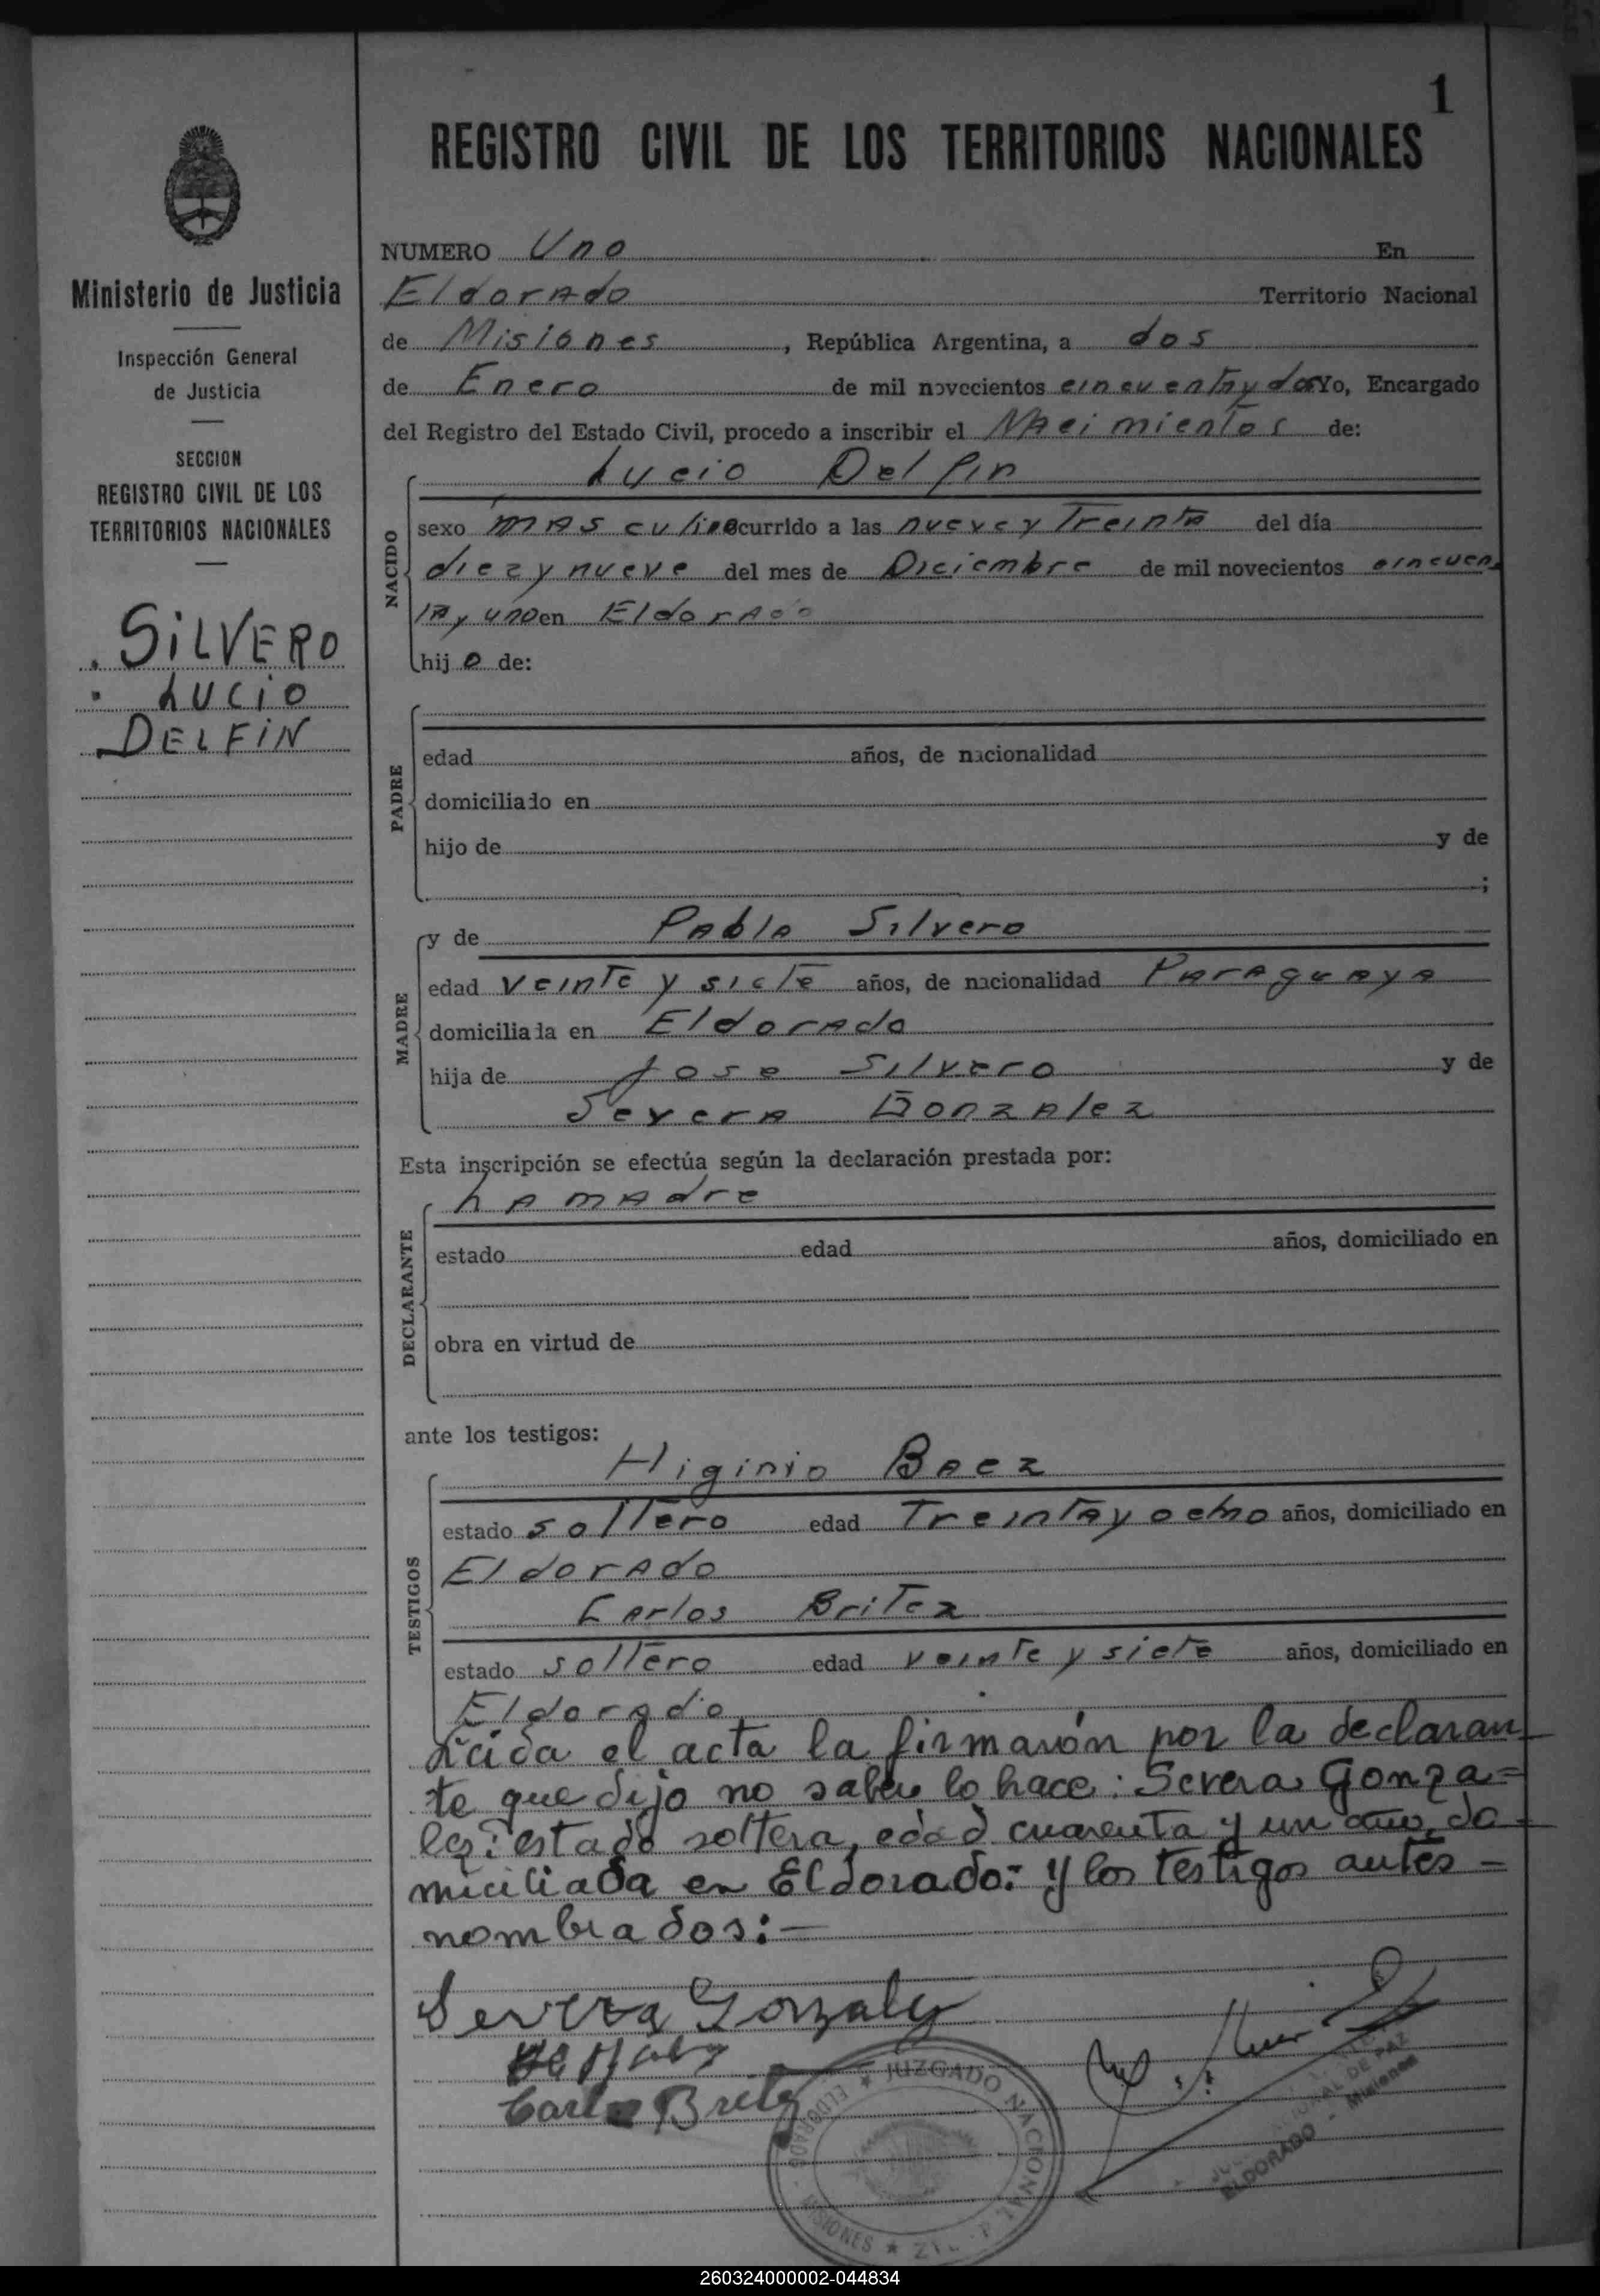 1
REGISTRO CIVIL DE LOS TERRITORIOS NACIONALES
Ministerio de Justicia
Inspección General
de Justicia
SECCION
REGISTRO CIVIL DE LOS
TERRITORIOS NACIONALES
SiLVERO
LUCiO
DELFiN
NUMERO Uno En
Eldorado Territorio Nacional
de Misiones, República Argentina, a dos
de Enero de mil novecientos cincuenta y dos Yo, Encargado
del Registro del Estado Civil, procedo a inscribir el Nacimientos de:
NACIDO
Lucio Delfin
sexo masculino ocurrido a las nueve y Treinta del día
diez y nueve del mes de Diciembre de mil novecientos cincuen
ta y uno en Eldorado
hij o de:
PADRE
edad años, de nacionalidad
domiciliado en
hijo de y de
;
MADRE
y de Pabla Silvero
edad veinte y siete años, de nacionalidad Paraguaya
domiciliada en Eldorado
hija de Jose Silvero y de
Severa Gonzalez
Esta inscripción se efectúa según la declaración prestada por:
DECLARANTE
La madre
estado edad años, domiciliado en
obra en virtud de
ante los testigos:
TESTIGOS
Higinio Baez
estado soltero edad Treinta y ocho años, domiciliado en
Eldorado
Carlos Britez
estado soltero edad veinte y siete años, domiciliado en
Eldorado
Leida el acta la firmarón por la declaran
te que dijo no saber lo hace: Severa Gonza=
lez: estado soltera, edad cuarenta y un año, do-
miciliada en Eldorado: y los testigos antes -
nombrados:—
Severa Gonzalez
Carlos Britez
★ JUZGADO NACIONAL DE PAZ ★
ELDORADO - MISIONES
DE PAZ
ELDORADO - Misiones
260324000002-044834